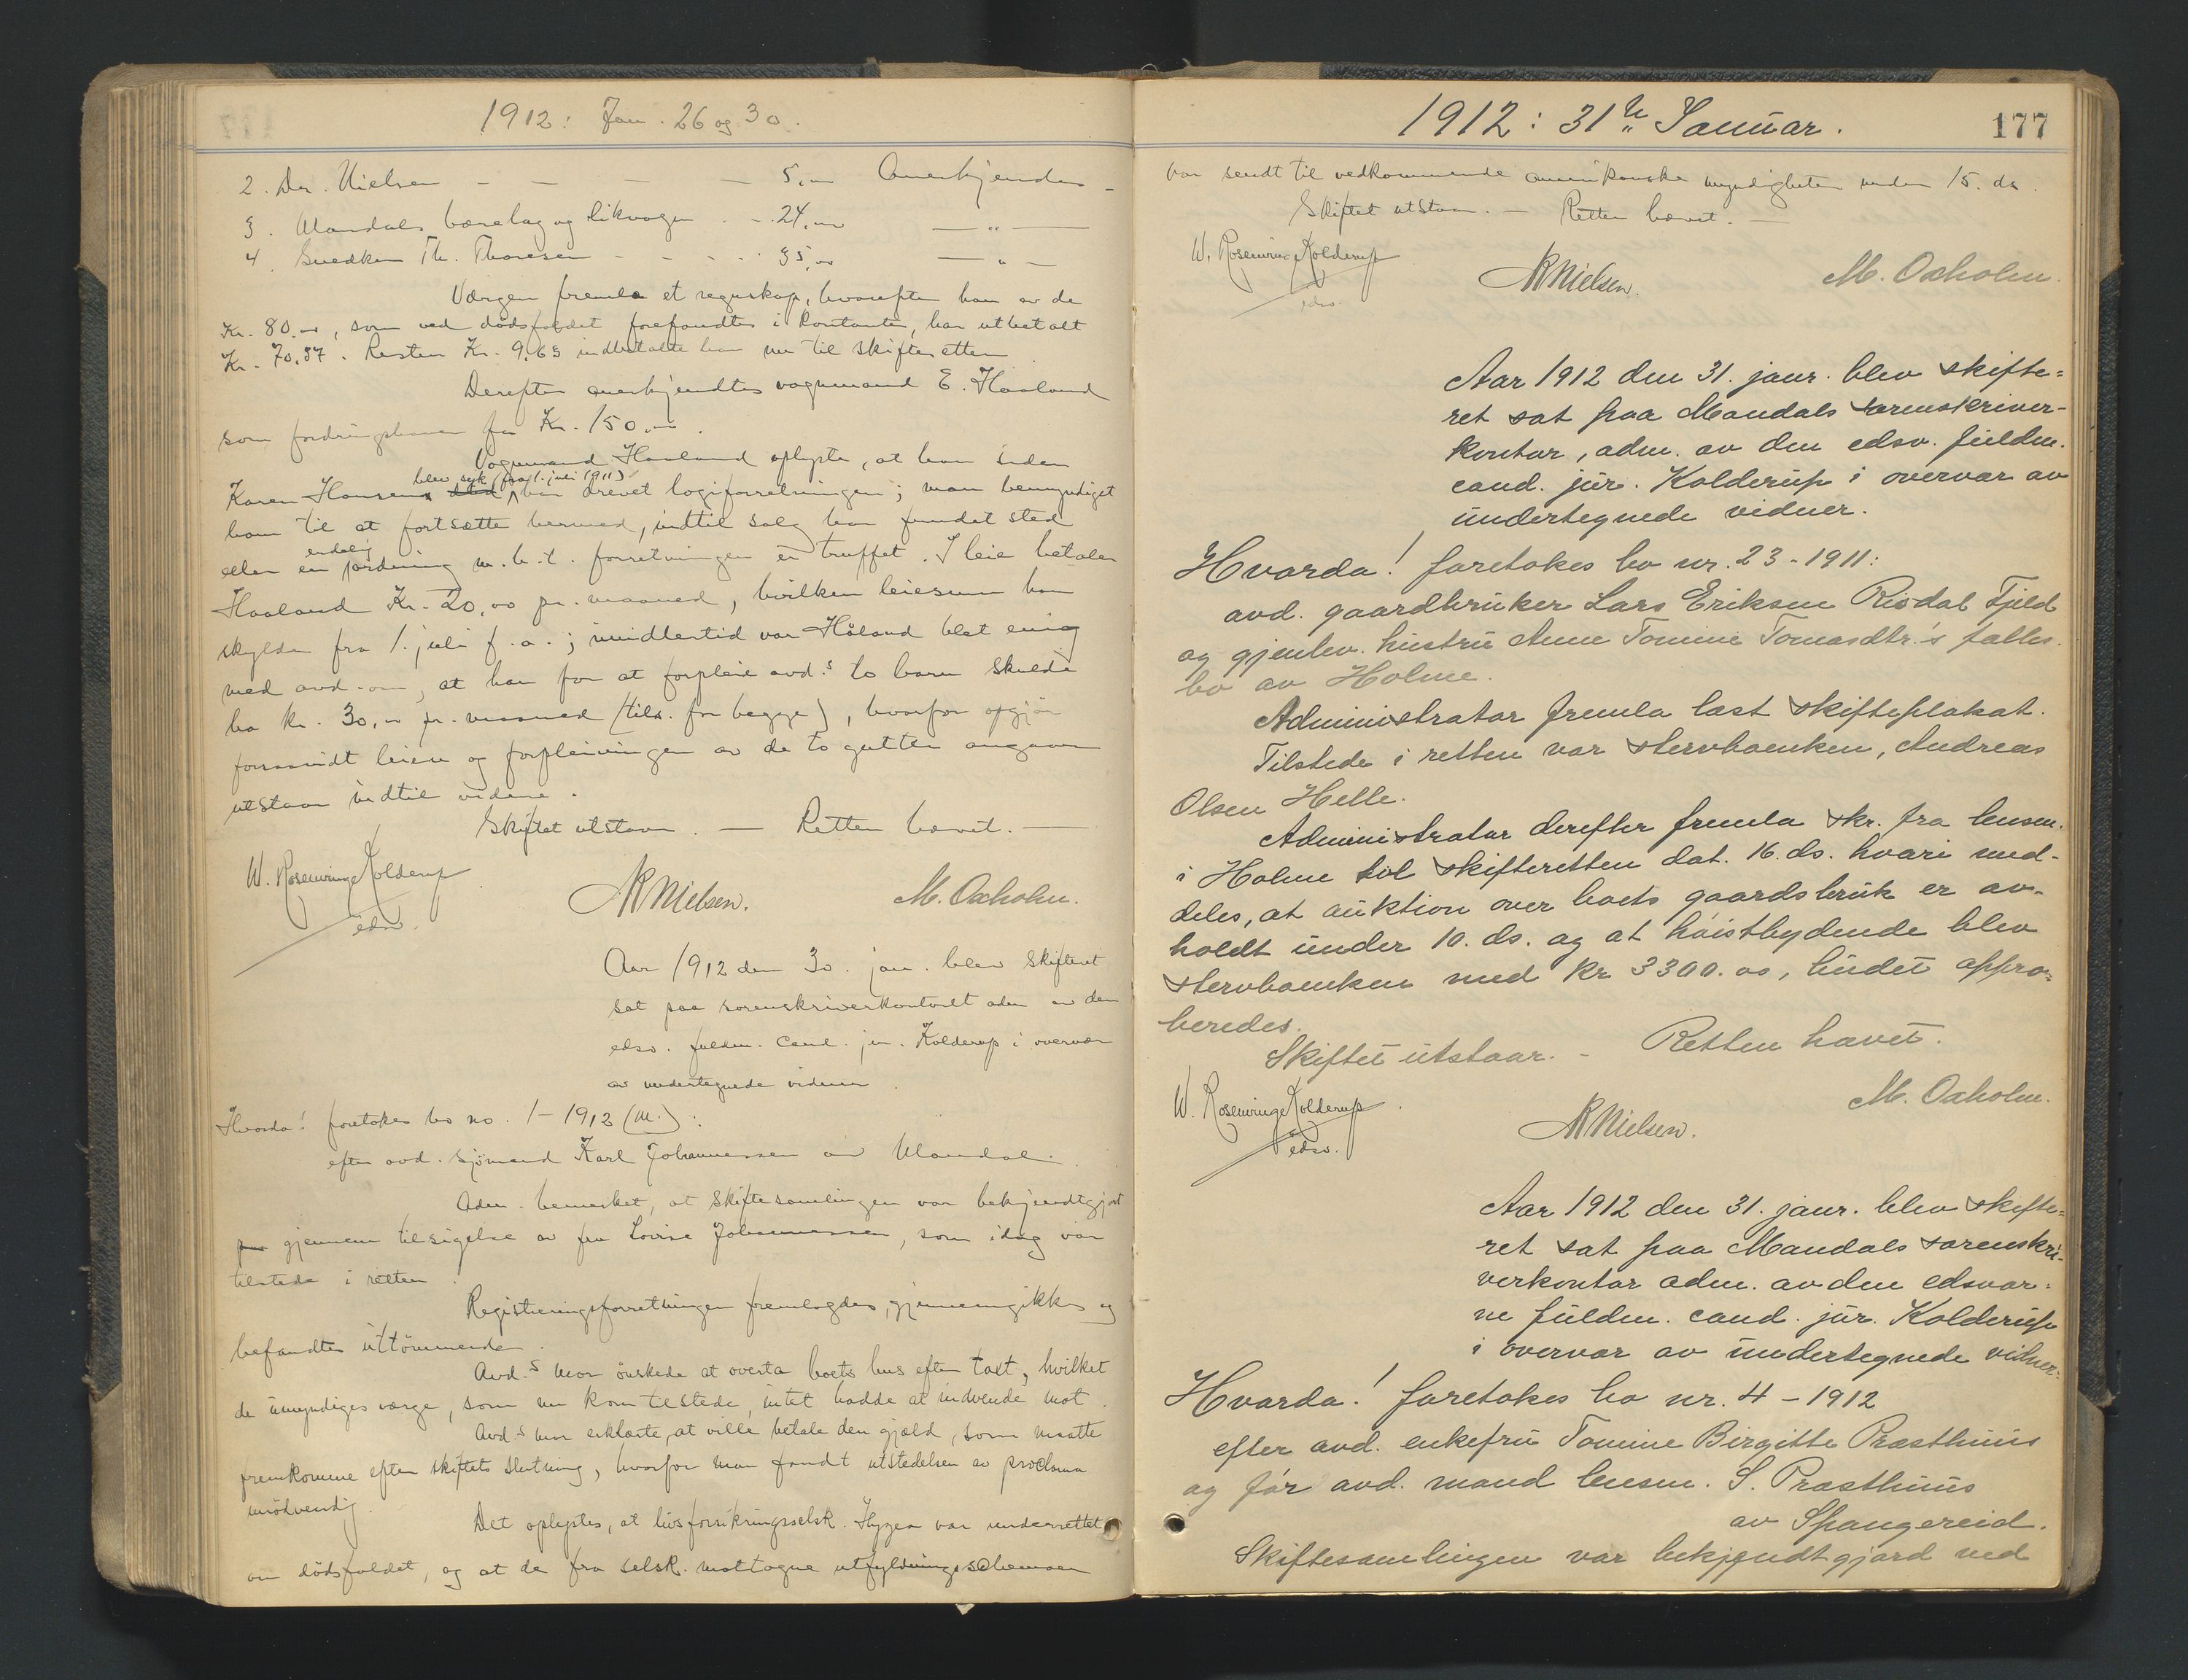 1912: Jan. 26 og 30.
2. Dr. Nielsen — — — — 5,00 Anerkjendes —
3. Mandals bærelag og likvogn . — . 24,00 — „ —
4. Snedker Th. Thoresen - - - - . 35,00 — „ —
Værgen fremla et regnskap, hvorefter han av de
Kr. 80.00, som ved dödsfaldet forefandtes i kontanter, har utbetalt
Kr. 70,37. Resten Kr. 9,63 indbetalte han nu til skifteretten
Derefter anerkjendtes vognmand E. Haaland
som fordringshaver for Kr. 150.00.
Vognmand Haaland oplyste, at han siden
blev syk (fra 1. juli 1911)
Karen Hansen har drevet logiforretningen; man bemyndiget
ham til at fortsætte hermed, indtil salg har fundet sted
endelig
eller en ordning m.h.t. forretningen er truffet. I leie betaler
Haaland Kr. 20,00 pr. maaned, hvilken leiesum han
skylder fra 1. juli f.a.; imidlertid var Håland blet enig
med avd. om, at han for at forpleie avd.s to barn skulde
ha kr. 30,00 pr. maaned (tils. for begge), hvorfor opgjör
forsaavidt leien og forpleiningen av de to gutter angaar
utstaar indtil videre.
Skiftet utstaar. — Retten hævet. —
W. Rosenvinge Kolderup
edsv.
NNielsen.
M. Oxholm.
Aar 1912 den 30. jan. blev skifteret
sat paa sorenskriverkontoret adm. av den
edsv. fuldm. cand. jur. Kolderup i overvær
av undertegnede vidner.
Hvorda! foretokes bo no. 1 - 1912 (M.):
efter avd. sjömand Karl Johannessen av Mandal.
Adm. bemerket, at skiftesamlingen var bekjendtgjort
gjennem tilsigelse av fru Lovise Johannessen, som idag var
tilstede i retten.
Registreringsforretningen fremlagdes, gjennemgikkes og
befandtes uttömmende.
Avd.s mor önskede at overta boets hus efter takt, hvilket
de umyndiges værge, som nu kom tilstede, intet hadde at indvende mot.
Avd.s mor erklærte, at ville betale den gjæld, som maatte
fremkomme efter skiftets slutning, hvorfor man fandt utstedelsen av proclama
unödvendig.
Det oplystes, at livsforsikringsselsk. Hygea var underrettet
om dödsfaldet, og at de fra selsk. mottagne utfyldningsschemaer
1912: 31te Januar.
177
var sendt til vedkommende amerikanske myndigheter under 15. ds.
Skiftet utstaar. — Retten hævet. —
W. Rosenvinge Kolderup
edsv.
NNielsen.
M. Oxholm.
Aar 1912 den 31. janr. blev skifte=
ret sat paa Mandals sorenskriver-
kontor, adm. av den edsv. fuldm.
cand. jur. Kolderup i overvær av
undertegnede vidner.
Hvorda! foretokes bo nr. 23 - 1911:
avd. gaardbruker Lars Eriksen Risdal Fjeld
og gjenlev. hustru Anne Tomine Tomasdtr.'s fælles
bo av Holme.
Administrator fremla læst skifteplakat.
Tilstede i retten var stervboenken, Andreas
Olsen Helle.
Administrator derefter fremla skr. fra lensm.
i Holme til skifteretten dat. 16. ds. hvori med-
deles, at auktion over boets gaardsbruk er av-
holdt under 10. ds. og at höistbydende blev
stervboenken med kr 3300.00, budet appro=
beredes.
Skiftet utstaar. - Retten hævet.
W. Rosenvinge Kolderup
edsv.
NNielsen.
M. Oxholm.
Aar 1912 den 31. janr. blev skifte=
ret sat paa Mandals sorenskri-
verkontor adm. av den edsvor=
ne fuldm. cand. jur. Kolderup
i overvær av undertegnede vidner.
Hvorda! foretokes bo nr. 4 - 1912
efter avd. enkefru Tomine Birgitte Præsthuus
og för avd. mand lensm. S. Præsthuus
av Spangereid.
Skiftesamlingen var bekjendtgjord ved